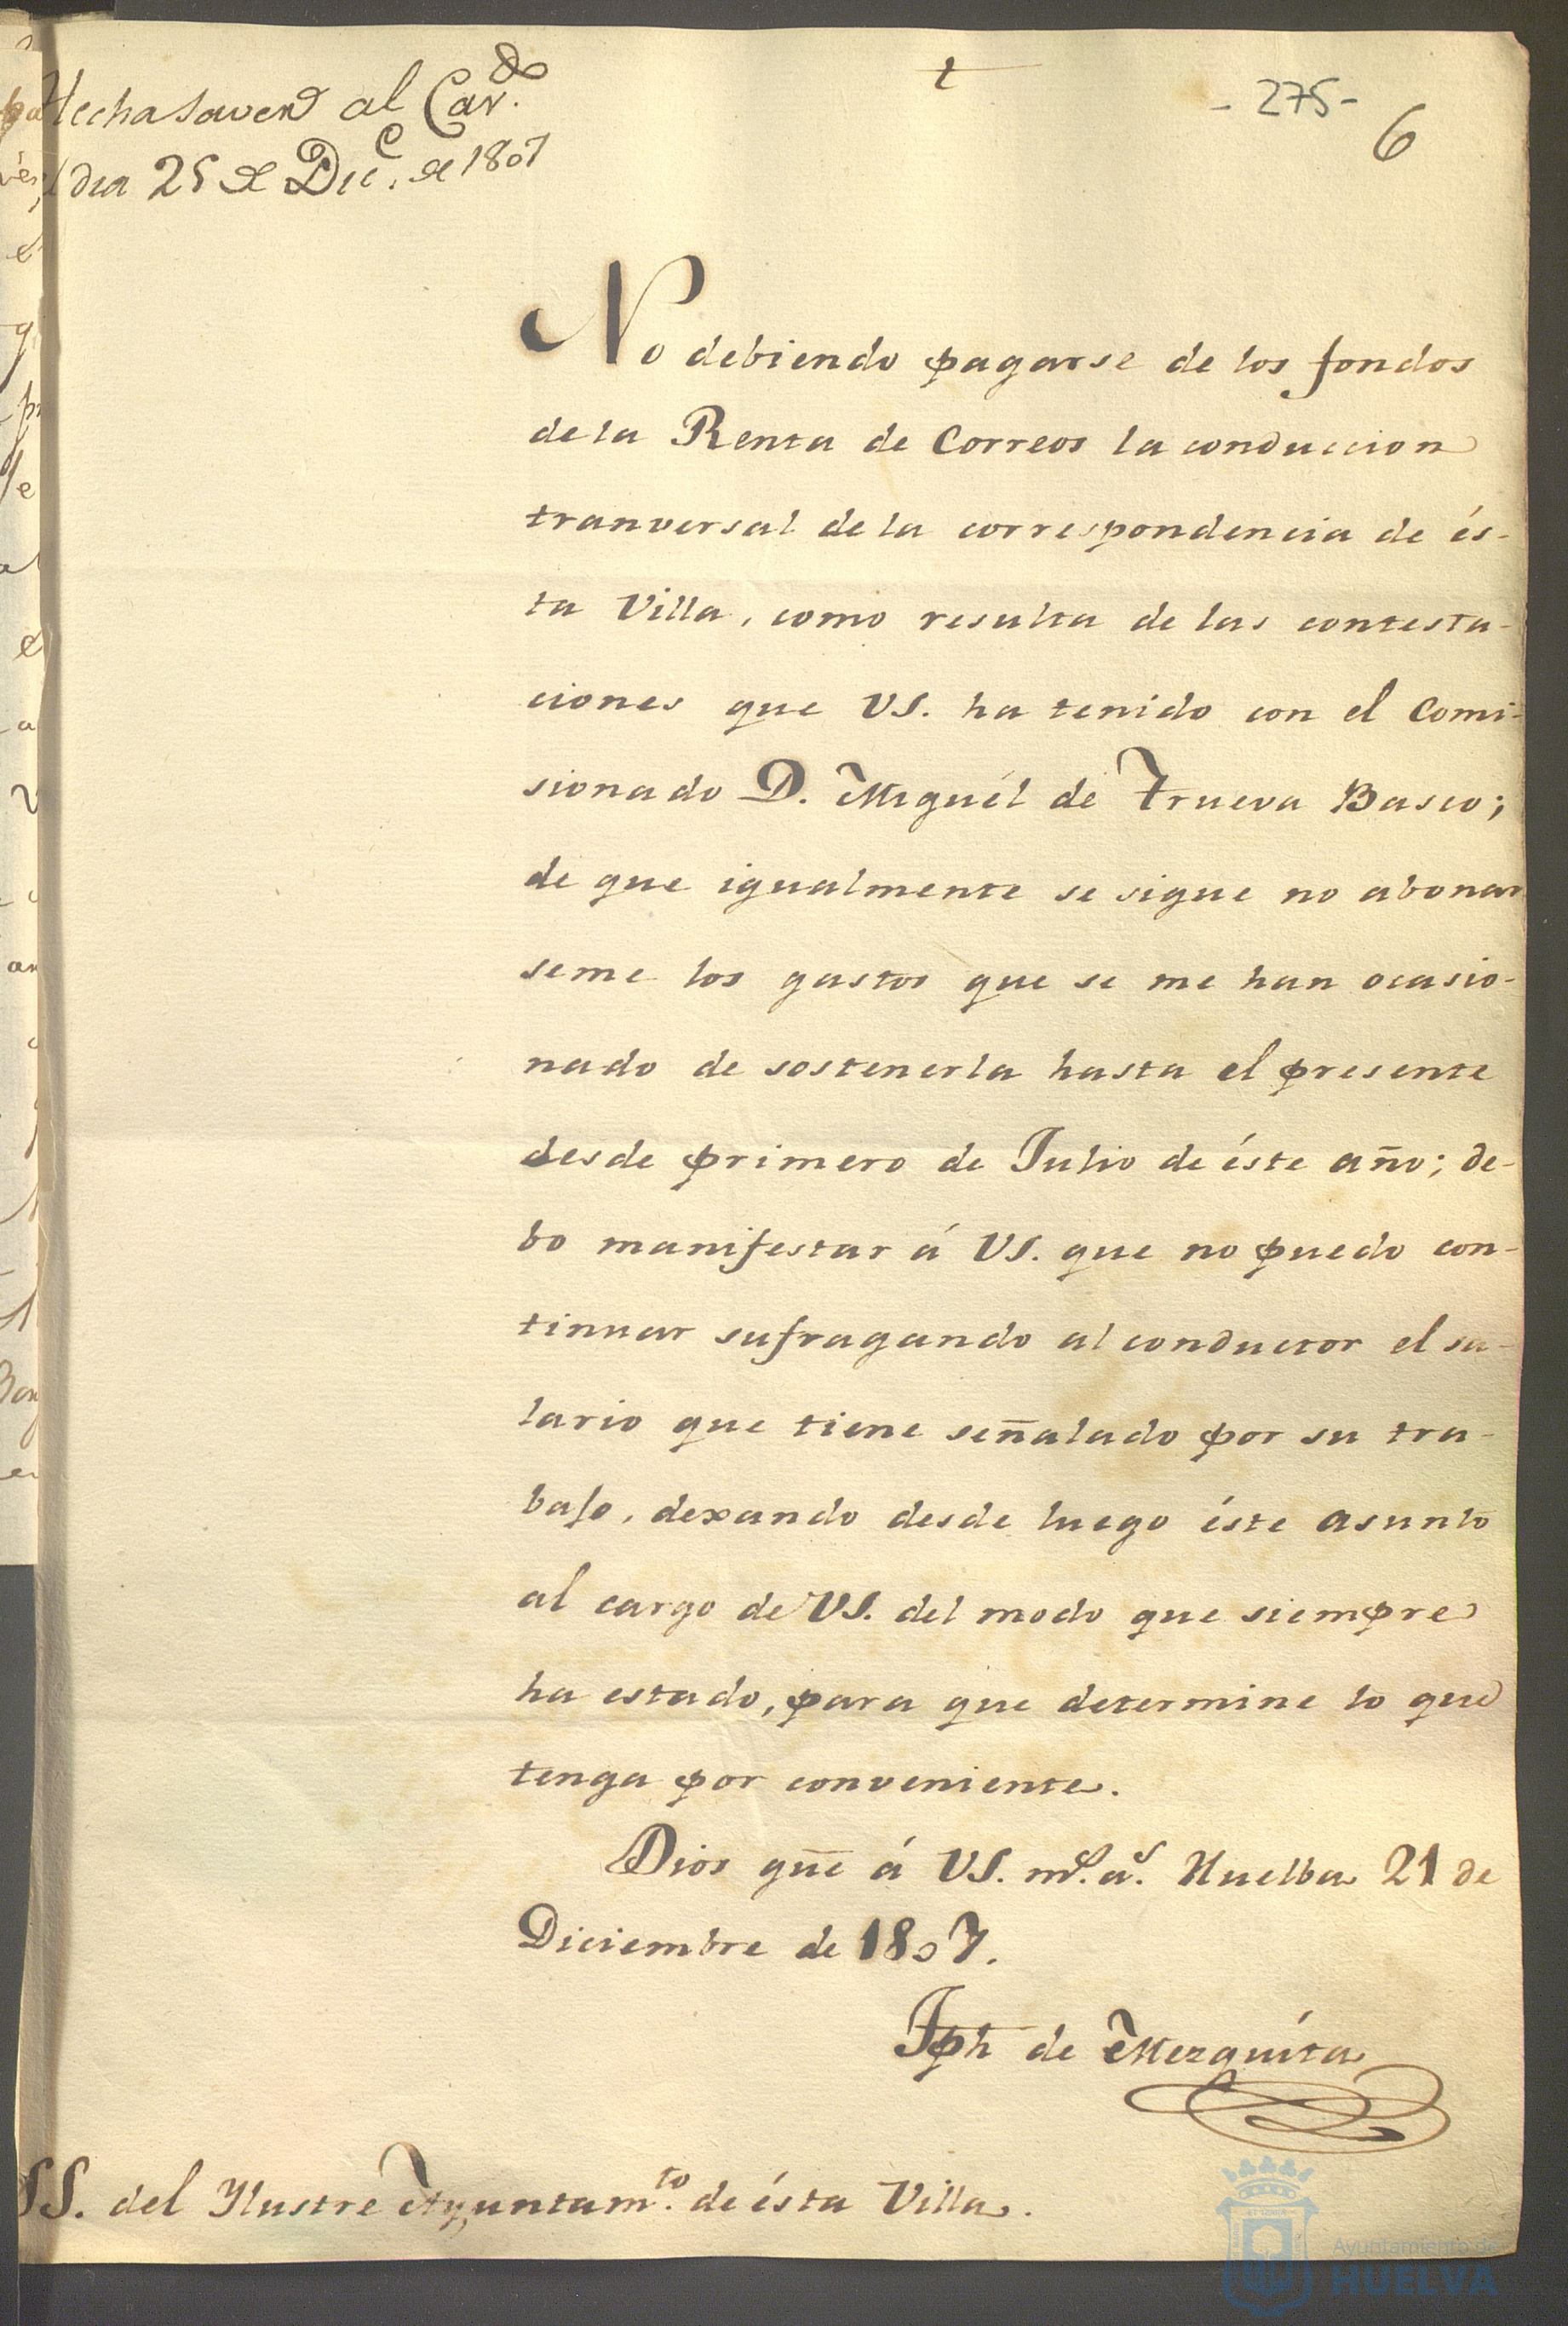 Hecha saver al Cav.do
dia 25 de Dic.e de 1807
- 275 -
6
No debiendo pagarse de los fondos
de la Renta de Correos la conduccion
tranversal de la correspondencia de és-
ta Villa, como resulta de las contesta-
ciones que VS. ha tenido con el Comi-
sionado D. Miguél de Trueva Basco;
de que igualmente se sigue no abonar
seme los gastos que se me han ocasio-
nado de sostenerla hasta el presente
desde primero de Julio de éste año; de-
bo manifestar á VS. que no puedo con-
tinuar sufragando al conductor el sa-
lario que tiene señalado por su tra-
bajo, dexando desde luego éste asunto
al cargo de VS. del modo que siempre
ha estado, para que determine lo que
tenga por conveniente.
Dios gue á VS. ms. as. Huelba 21 de
Diciembre de 1807.
Jph de Mezquíta
SS. del Ylustre Ayuntam.to de ésta Villa.
Ayuntamiento de
HUELVA